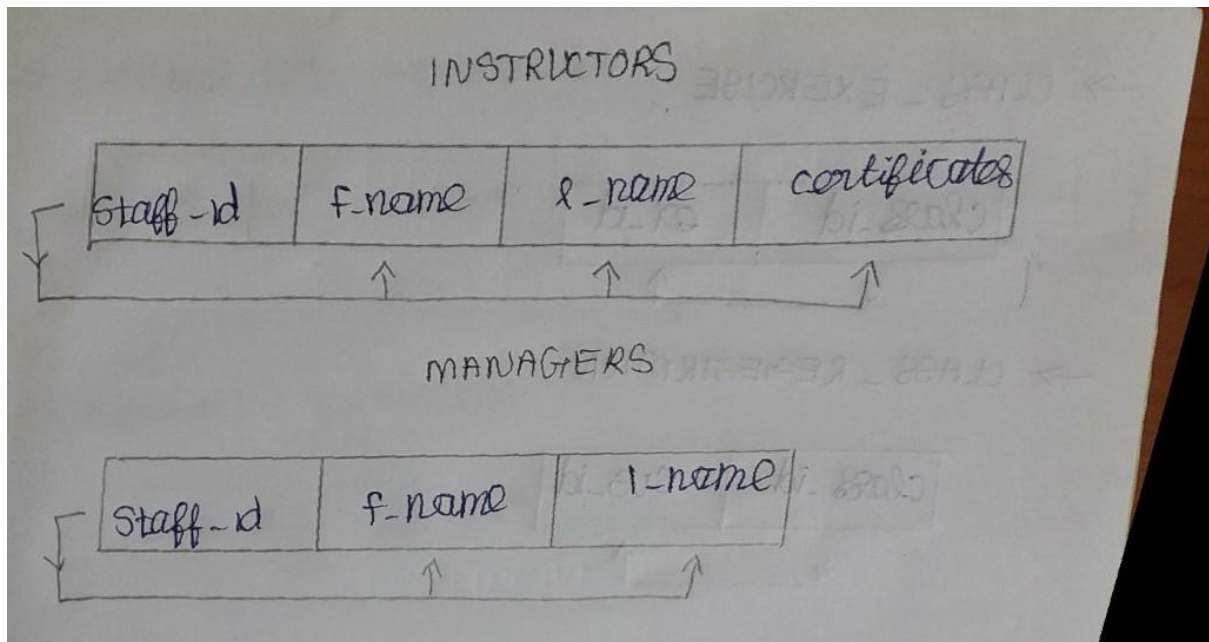 INSTRUCTORS
Staff_id f_name l_name certificates
MANAGERS
Staff_id f_name l_name